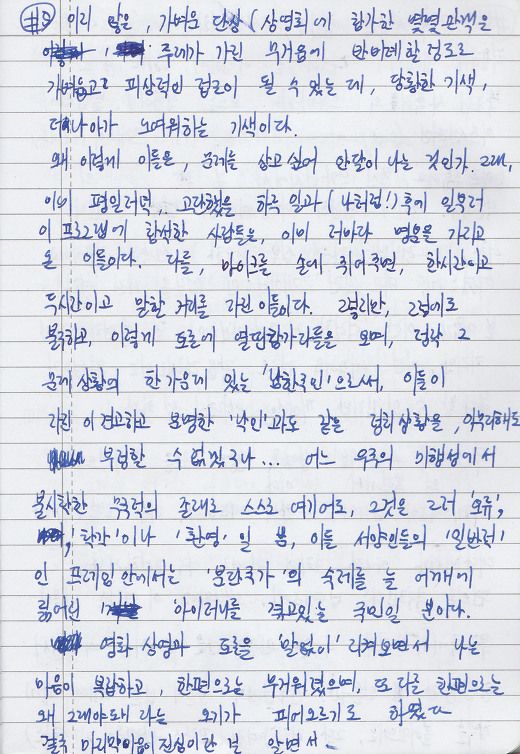 #9 이리 많은, 가벼운 단상(상영회에 참가한 몇몇 관객은
주제가 가진 무거움에 반비례할 정도로
가벼웁고 피상적인 접근이 될 수 있는데, 당황한 기색,
더 나아가 노여워하는 기색이다.
왜 이렇게 이들은, 문제를 삼고 싶어 안달이 나는 것인가. 그래,
이미 평일 저녁, 고단했을 하루 일과(나처럼!) 후에 일부러
이 프로그램에 참석한 사람들은, 이미 저마다 명분을 가지고
온 이들이다. 다들, 마이크를 손에 쥐어주면, 한시간이고
두시간이고 말할 거리를 가진 이들이다. 그렇지만, 그럼에도
불구하고, 이렇게 토론에 열띤 참가자들을 보며, 덩달아 그
문제상황의 한가운데 있는 '남한국민'으로써, 이들이
가진 이 견고하고 분명한 '낙인'과도 같은 정치상황을, 아무리해도
부정할 수 없겠구나... 어느 우주의 미행성에서
불시착한 무국적 존재로 스스로 여기어도, 그것은 그저 '오류',
'착각'이나 '환영' 일 뿐, 이들 서양인들의 '일반적'
인 프레임 안에서는 '분단국가'의 숙제를 늘 어깨에
짊어진 '아이러니를 겪고있는 국민일 뿐이다.
영화 상영과 토론을 '말없이' 지켜보면서 나는
마음이 복잡하고, 한편으로는 무거워졌으며, 또 다른 한편으로는
왜 그래야돼 라는 오기가 피어오르기도 하였다
결국 마지막 마음이 진심이란 걸 알면서..